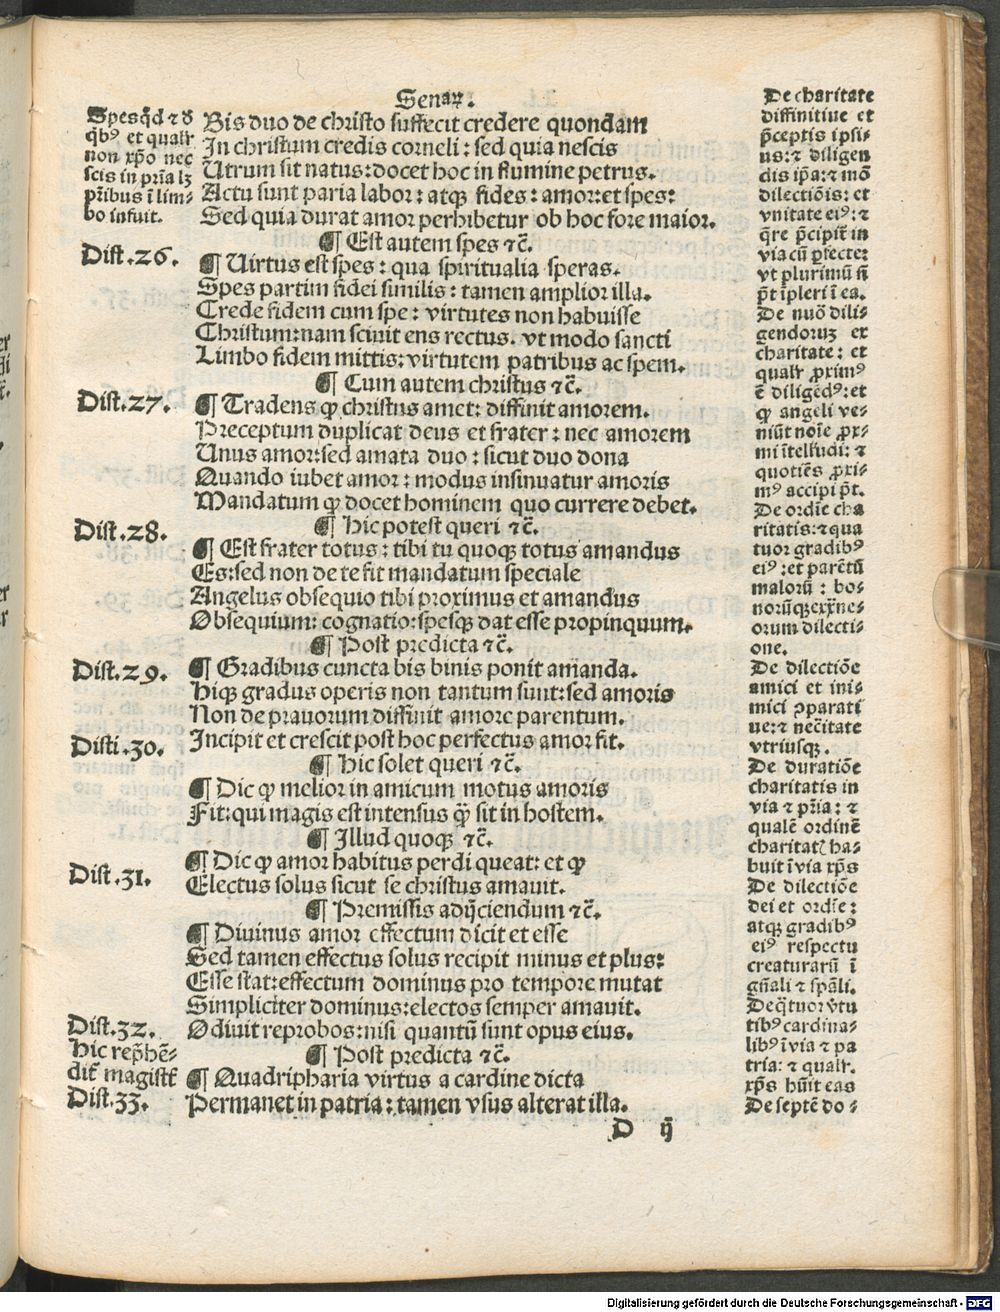 Senaꝝ.
Spesq̄d ⁊ d̄
q̄bꝰ et qualr̄
non xp̄o nec
scis in pr̄ia lꝫ
pr̄ibus ī lim-
bo infuit.
Bis duo de christo suffecit credere quondam
In christum credis corneli: sed quia nescis
Utrum sit natus: docet hoc in flumine petrus.
Actu sunt paria labor: atqꝫ fides: amor: et spes:
Sed quia durat amor perhibetur ob hoc fore maior.
¶ Est autem spes ⁊c̄.
Dist.26.
¶ Uirtus est spes: qua spiritualia speras.
Spes partim fidei similis: tamen amplior illa.
Crede fidem cum spe: virtutes non habuisse
Christum: nam sciuit ens rectus. vt modo sancti
Limbo fidem mittis: virtutem patribus ac spem.
¶ Cum autem christus ⁊c̄.
Dist.27.
¶ Tradens ꝙ christus amet: diffinit amorem.
Preceptum duplicat deus et frater: nec amorem
Unus amor: sed amata duo: sicut duo dona
Quando iubet amor: modus insinuatur amoris
Mandatum ꝙ docet hominem quo currere debet.
¶ Hic potest queri ⁊c̄.
Dist.28.
¶ Est frater totus: tibi tu quoqꝫ totus amandus
Es: sed non de te fit mandatum speciale
Angelus obsequio tibi proximus et amandus
Obsequium: cognatio: spesqꝫ dat esse propinquum.
¶ Post predicta ⁊c̄.
Dist.29.
¶ Gradibus cuncta bis binis ponit amanda.
Hiqꝫ gradus operis non tantum sunt: sed amoris
Non de prauorum diffinit amore parentum.
Disti.30.
Incipit et crescit post hoc perfectus amor fit.
¶ Hic solet queri ⁊c̄.
¶ Dic ꝙ melior in amicum motus amoris
Fit: qui magis est intensus ꝙ̄ sit in hostem.
¶ Illud quoqꝫ ⁊c̄.
Dist.31.
¶ Dic ꝙ amor habitus perdi queat: et ꝙ
Electus solus sicut se christus amauit.
¶ Premissis adijciendum ⁊c̄.
¶ Diuinus amor effectum dicit et esse
Sed tamen effectus solus recipit minus et plus:
Esse stat: effectum dominus pro tempore mutat
Simpliciter dominus: electos semper amauit.
Dist.32.
Odiuit reprobos: nisi quantū sunt opus eius.
¶ Post predicta ⁊c̄.
Hic rep̄hē-
dit̄ magistr̄
¶ Quadripharia virtus a cardine dicta
Dist.33.
Permanet in patria: tamen vsus alterat illa.
D ij
De charitate
diffinitiue et
p̄ceptis ipsi-
us: ⁊ diligen
dis ip̄a: ⁊ mō
dilectiōis: et
vnitate eiꝰ: ⁊
q̄re p̄cipit̄ in
via cū ꝑfecte:
vt plurimū n̄
p̄t īpleri ī ea.
De nuō dili-
gendoruꝫ ex
charitate: et
qualr̄ ꝓximꝰ
ē diligēdꝰ: et
ꝙ angeli ve-
niūt noīe ꝓx-
mi ītelludi: ⁊
quotiēs ꝓxi-
mꝰ accipi p̄t.
De ordīe cha
ritatis: ⁊ qua
tuor gradibꝰ
eiꝰ: et parētū
malorū: bo-
norūqꝫ
orum dilecti-
one.
De dilectiōe
amici et ini-
mici ꝯparati
ue: ⁊ nec̄itate
vtriusqꝫ.
De duratiōe
charitatis in
via ⁊ pr̄ia: ⁊
qualē ordinē
charitatꝭ ha-
buit ī via xp̄s
De dilectiōe
dei et ordīe:
atqꝫ gradibꝰ
eiꝰ respectu
creaturarū ī
gn̄ali ⁊ sp̄ali.
De q̄tuor v̄tu
tibꝰ cardina-
libꝰ ī via ⁊ pa
tria: ⁊ qualr̄.
xp̄s hūit eas
De septē do-
Digitalisierung gefördert durch die Deutsche Forschungsgemeinschaft - DFG